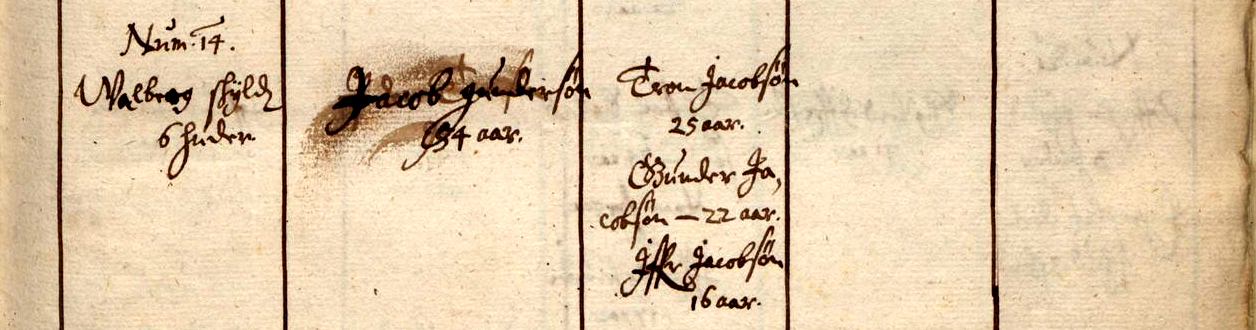 Num. 14.
Walberg skyld
6 huder
Jacob Gundersøn
64 aar.
Tron Jacobsøn
25 aar.
Gunder Ja,
cobsøn — 22 aar.
Jffr Jacobsøn
16 aar.